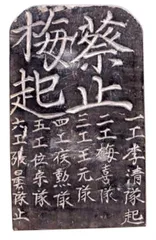 蔡止
梅起
一工李清隊起
二工梅喜隊
三工王元隊
四工侯勲隊
五工位牟隊
六工張曇隊止